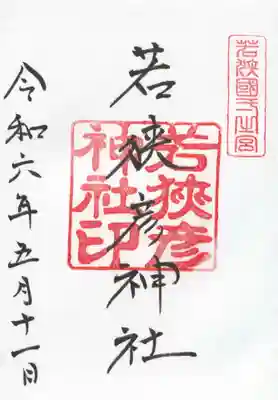 若狹國一之宮
若狹彦神社
若狹彦
神社印
令和六年五月十一日